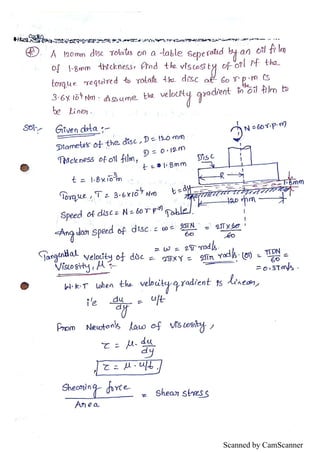 A 120mm disc rotates on a table seperated by an oil film
of 1.8mm thickness. find the viscosity of oil if the
torque required to rotate the disc at 60 r.p.m is
3.6×10⁻⁴ Nm. Assume the velocity gradient in oil film to
be linear.
Sol:- Given data :-
Diameter of the disc, D = 120mm
D = 0.12m
Thickness of oil film, t = 1.8mm
t = 1.8×10⁻³m
Torque, T = 3.6×10⁻⁴ Nm
Speed of disc = N = 60 r.p.m
Angular speed of disc = ω = 2πN/60 = 2π×60/60
= ω = 2π rad/s.
N = 60 r.p.m
Disc
R
t = dy
1.8mm
120 mm
Table
Tangential velocity of disc = 2π×r = 2πr rad/s. (or) = πDN/60 = 0.37m/s.
Viscosity, μ :-
W.K.T when the velocity gradient is linear,
i'e du/dy = u/t
From Newton's law of viscosity,
τ = μ. du/dy
τ = μ. u/t
Shearing force/Area = Shear stress
Scanned by CamScanner